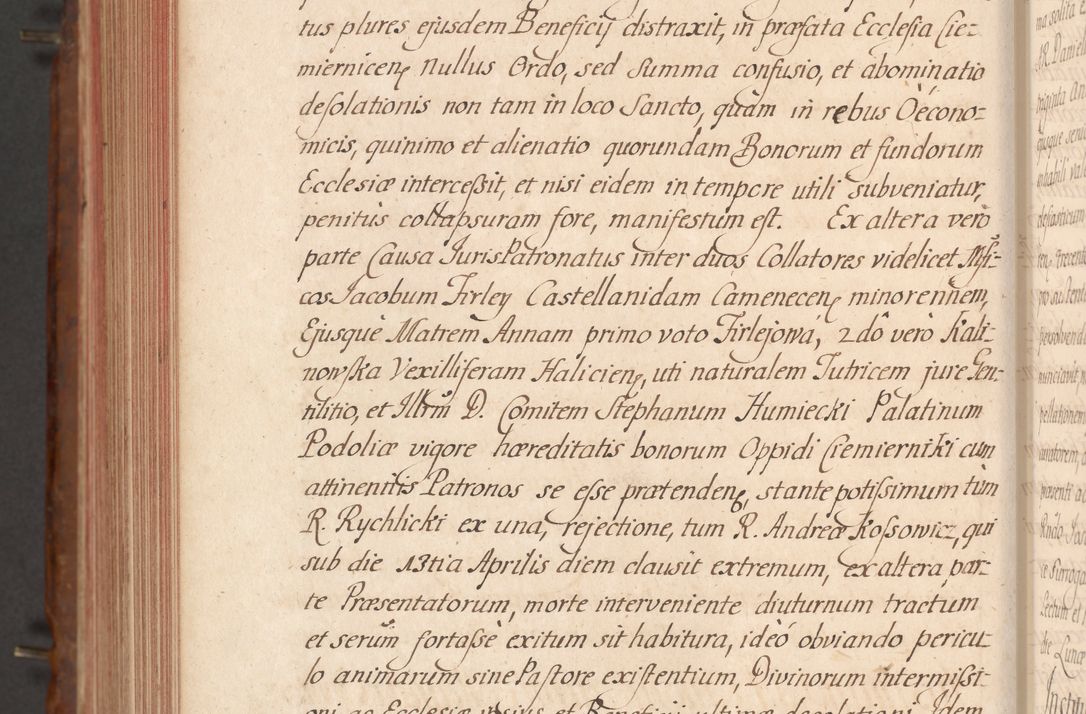 tus plures ejusdem Beneficij distraxit, in præfata Ecclesia Cie=
miernicen, Nullus Ordo, sed Summa confusio, et abominatio
desolationis non tam in loco Sancto, quàm in rebus Oécono=
micis, quinimo et alienatio quorundam Bonorum et fundorum
Ecclesiæ intercessit, et nisi eidem in tempore utili subveniatur,
penitùs collapsuram fore, manifestum est. Ex altera verò
parte Causa JurisPatronatus inter duos Collatores videlicet Mfi=
cos Jacobum Firley Castellanidam Camenecen, minorennem,
Ejusquè Matrem Annam primo voto Firlejowá, 2dô verò Kali=
nowska Vexilliferam Halicien, uti naturalem Tutricem jure Gen=
tilitio, et Illrm D. Comitem Stephanum Humiecki Palatinum
Podoliæ vigore hæreditatis bonorum Oppidi Ciemierniki cum
attinentiis Patronos se esse prætenden, stante potissimum tùm
R. Rychlicki ex una, rejectione, tum R. Andreæ Kossowicz, qui
sub die 13tia Aprilis diem clausit extremum, ex altera par=
te Præsentatorum, morte interveniente diuturnum tractum
et serum fortassè exitum sit habitura, ideó obviando pericu=
lo animarum sine Pastore existentium, Divinorum intermissi=
oni ac Ecclesiæ ipsius et Beneficij ultimæ desolationi Idem